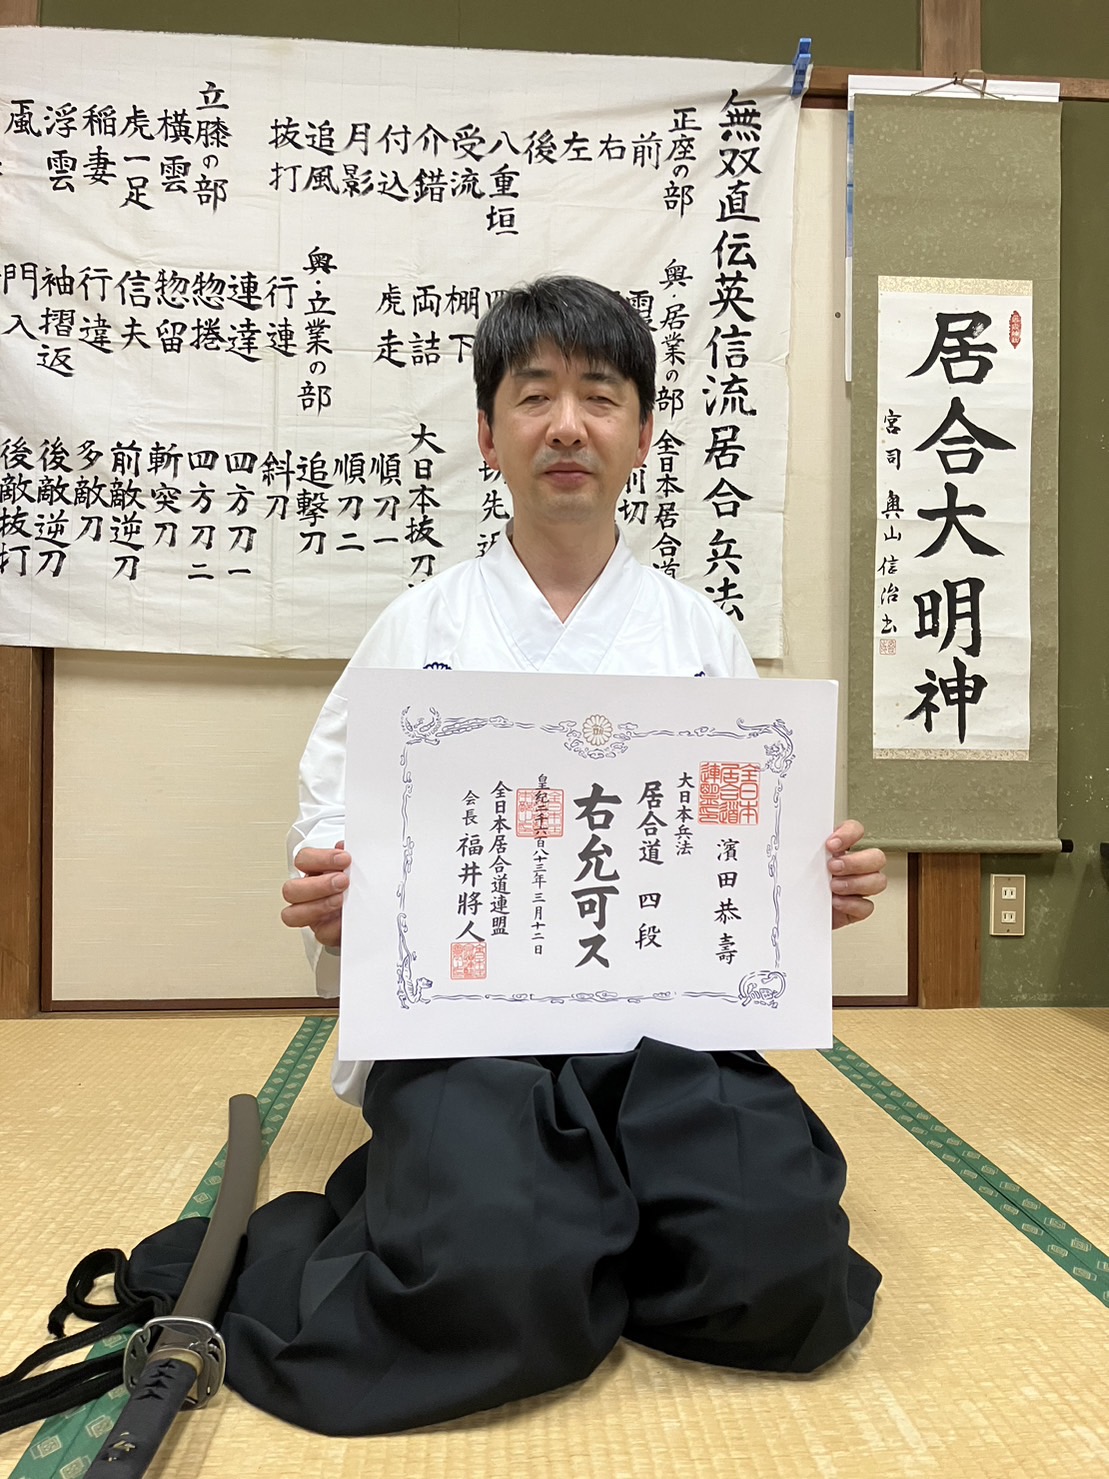 無双直伝英信流居合兵法
正座の部
前
右
左
後
八重垣
受流
介錯
付込
月影
追風
抜打
立膝の部
横雲
虎一足
稲妻
浮雲
颪
奥・居業の部
棚下
両詰
虎走
奥・立業の部
行連
連達
惣捲
惣留
信夫
行違
袖摺返
門入
全日本居合道
前切
切先返
大日本抜刀
順刀一
順刀二
追撃刀
斜刀
四方刀一
四方刀二
斬突刀
前敵逆刀
多敵刀
後敵逆刀
後敵抜打
居合大明神
宮司 奥山信治書
濱田恭壽
大日本兵法
居合道 四段
右允可ス
皇紀二千六百八十三年三月十二日
全日本居合道連盟
会長 福井將人
全日本居合道連盟印